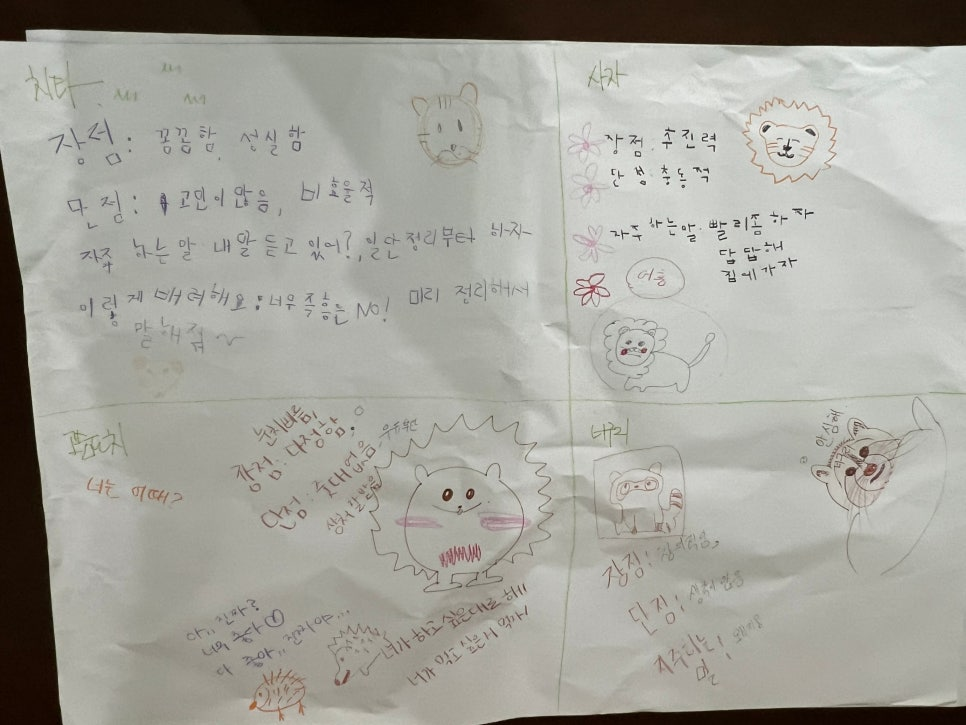 치타
장점: 꼼꼼함, 성실함
단점: 고민이 많음, 비효율적
자주 하는 말: 내 말 듣고 있어?, 일단 정리부터 하자
이렇게 배려해요: 너무 즉흥은 No! 미리 정리해서
말해줘~
사자
장점: 추진력
단점: 충동적
자주하는말: 빨리좀하자
답답해
집에가자
어흥
너는 어때?
눈치빠름,
장점: 다정함
단점: 줏대없음, 우유부단
상처 잘 받음
아.. 진짜로
너무 좋아
다 좋아.. 진짜야...
너가 하고 싶은대로 해!
너가 먹고 싶은거 먹자!
너구리
안심해
장점:
단점: 상처
자주하는
말: